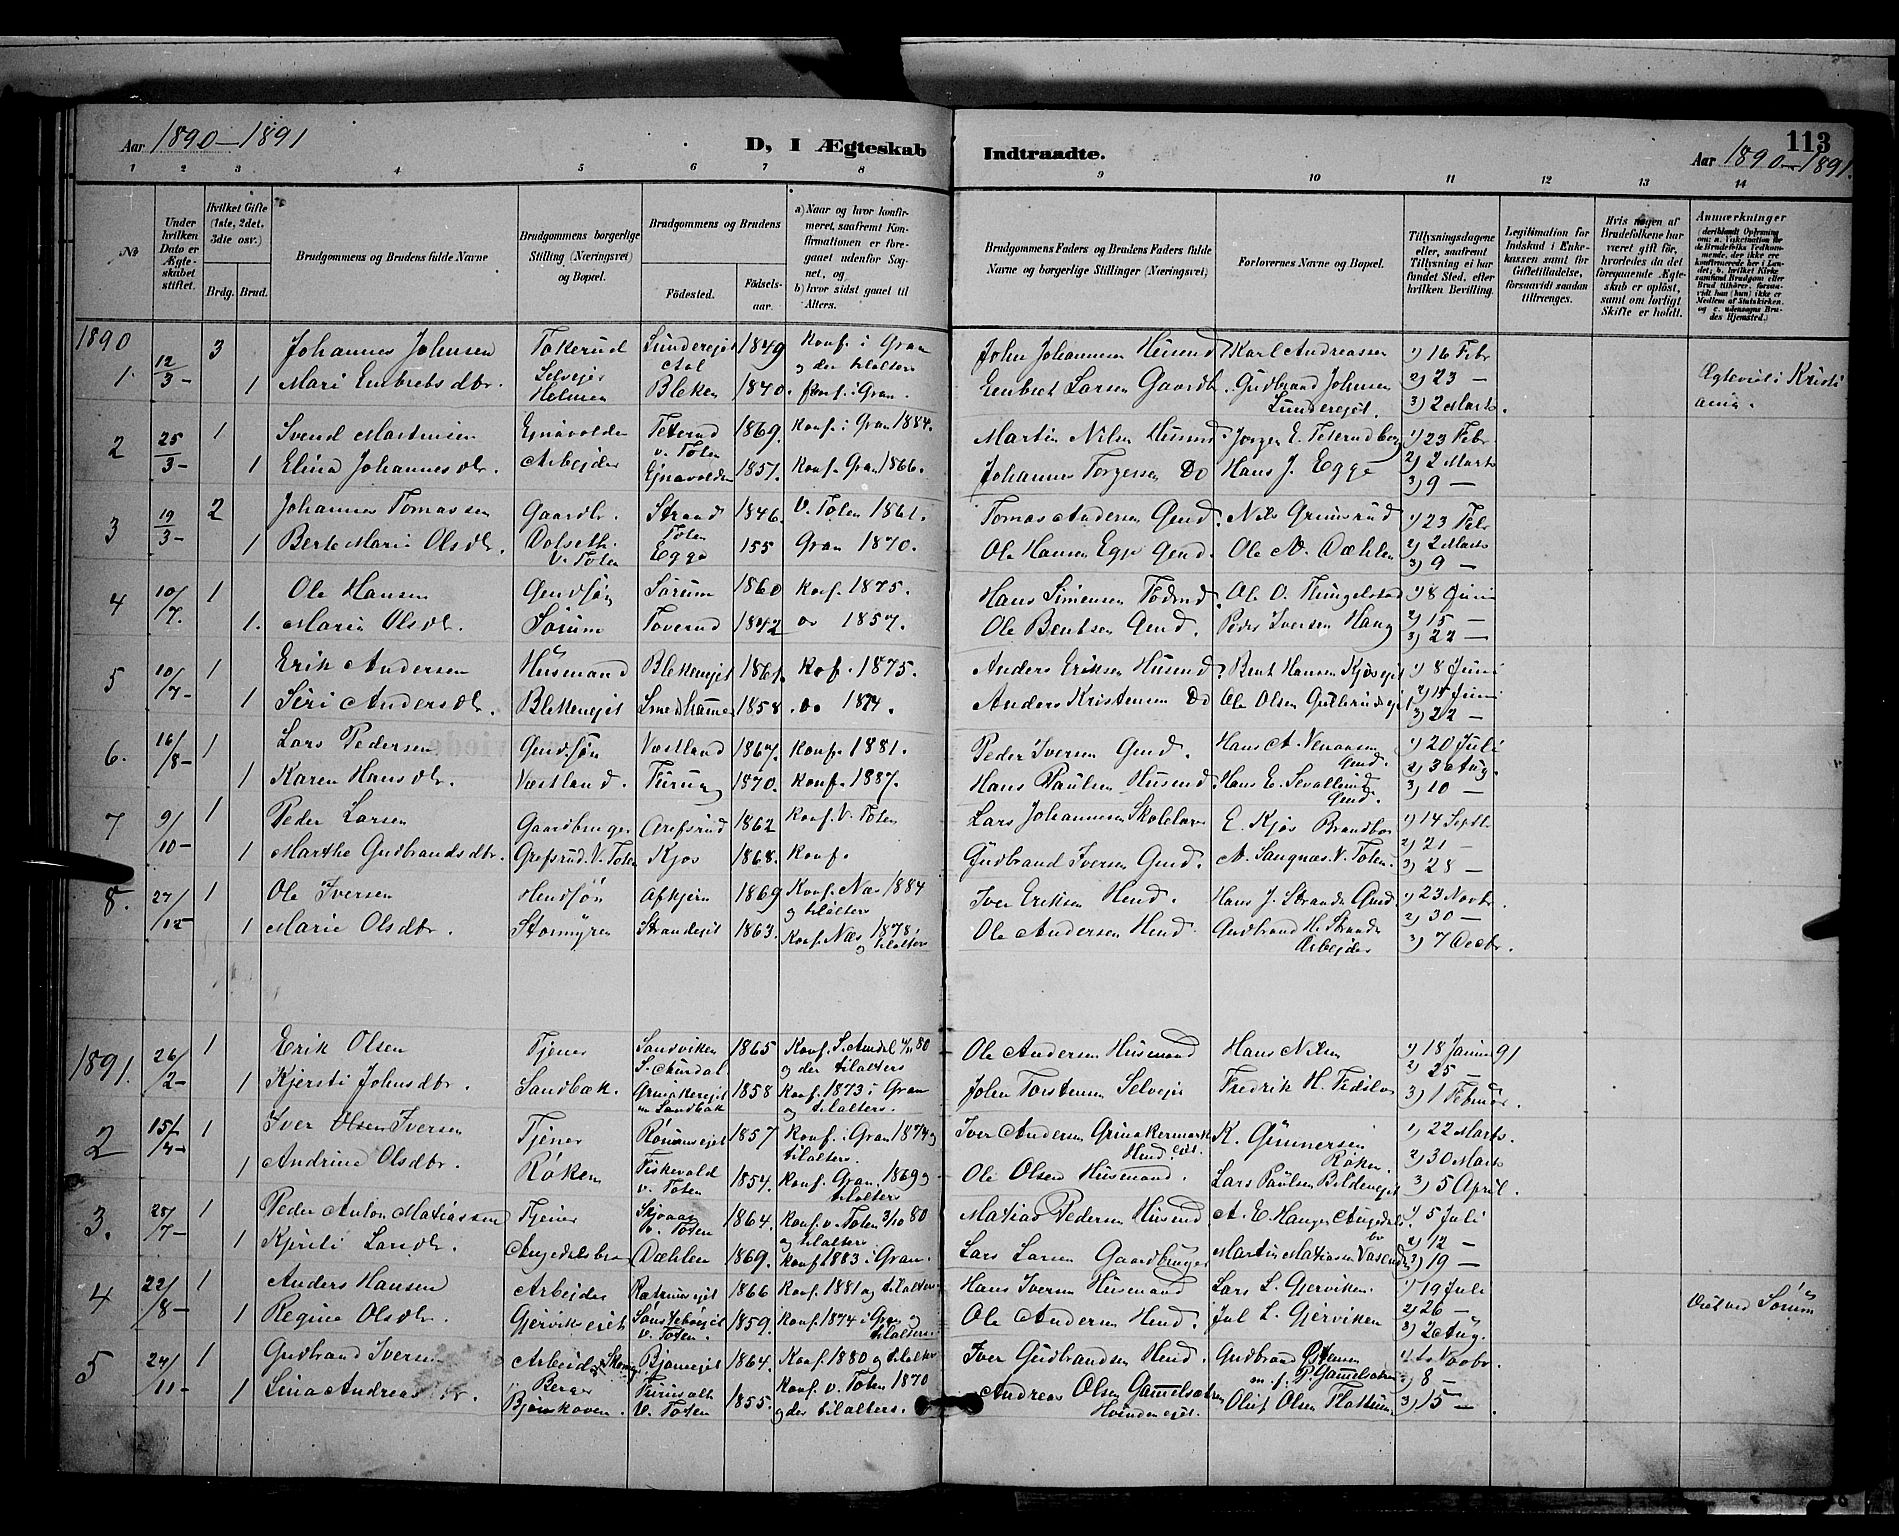 Aar 1890–1891
D, I Ægteskab Indtraadte.
113
Aar 1890–1891.
1 2 3 4 5 6 7 8 9 10 11 12 13 14
№
Under hvilken Dato er Ægteskabet stiftet.
Hvilket Gifte (1ste, 2det, 3die osv.)
Brdg. Brud.
Brudgommens og Brudens fulde Navne
Brudgommens borgerlige Stilling (Næringsvei) og Bopæl.
Brudgommens og Brudens
Födested.
Födselsaar.
a) Naar og hvor konfirmeret, saafremt Konfirmationen er foregaaet udenfor Sognet, og
b) hvor sidst gaaet til Alters.
Brudgommens Faders og Brudens Faders fulde Navne og borgerlige Stillinger (Næringsvei)
Forlovernes Navne og Bopæl.
Tillysningsdagene eller, saafremt Tillysning ei har fundet Sted, efter hvilken Bevilling.
Legitimation for Indskud i Enkekassen samt for Giftetilladelse, forsaavidt saadan tiltrænges.
Hvis nogen af Brudefolkene har været gift för, hvorledes da det foregaaende Ægteskab er oplöst, samt om lovligt Skifte er holdt.
Anmærkninger
1890
1. 12/3 – 3 Johannes Johnsen Tokerud Lunderejet Aal 1849 Konf. i Gran og der tilalters John Johannesen Husmd Karl Andreassen 1) 16 Febr
1 Mari Embretsdbr. Selvejer Helmen Bleken 1840. Konf. i Gran. Embret Larsen Gaardb. Gudbrand Johnsen Lunderejet. 2) 23 – 3) 2 Marts. Ægteviet i Kristiania.
2 25/3 – 1 Svend Martinsen Ejnavolden Teterud v. Toten 1869. Konf. i Gran 1884. Martin Nilsen Husmd. Jørgen E. Teterudberg 1) 23 Febr
1 Elina Johannesdr. Arbejder Ejnavolden 1851. Konf. Gran 1866. Johannes Torgersen Do Hans J. Egge 2) 2 Marts 3) 9 –
3 19/3 – 2 Johannes Tomassen Gaardbr. Strand Toten 1846. V. Toten 1861. Tomas Andersen Gmd. Nils Grimsrud 1) 23 Febr
1 Berte Marie Olsdr. Dolseth. V. Toten Egge 155 Gran 1870. Ole Hansen Egge Gmd. Ole N. Dæhlen 2) 2 Marts 3) 9 –
4 10/7. 1 Ole Hansen Gmdsøn Sørum 1860 Konf. 1875. Hans Simensen Ole O. Thingelstad 1) 8 Juni
1. Maria Olsdr. Sørum Toverud 1842 do 1857. Ole Bentsen Gmd. Peder Iversen Haug 2) 15 – 3) 22 –
5 10/7 – 1 Erik Andersen Husmand Blekenejet 1861. Kof. 1875. Anders Eriksen Husmd. Brut Hansen Kjosejet 1) 8 Juni
1 Siri Andersdr. Blekkenejet Smedshammer 1858. do 1874. Anders Kristensen Do Ole Olsen Gullerudsejet 2) 15 Juni 3) 22 –
6. 16/8 – 1 Lars Pedersen Gmdsøn Vestland 1867. Konf. 1881. Peder Iversen Gmd. Hans A. Gmd. 1) 20 Juli
1 Karen Hansdr. Vestland. Furung 1870. Konf. 1887. Hans Paulsen Husmd. Hans E. Gmd. 2) 3 Aug. 3) 10 –
7 9/10 – 1 Peder Larsen Gaardbruger Grefsrud 1862 Konf. V. Toten Lars Johannesen Skolelærer E. Kjos Brandbu 1) 14 Septbr
1 Marthe Gudbrandsdbr. Grefsrud. V. Toten Kjos 1868. Konf. Gudbrand Iversen Gmd. A. Sangnæs. V. Toten. 2) 21 – 3) 28 –
8. 27/12 – 1 Ole Iversen Hmdsøn Afkjern 1869 Konf. Næs 1884 og tilalters Iver Eriksen Hmd. Hans J. Strande Gmd 1) 23 Novbr.
1 Marie Olsdbr. Stormyren Strandejet 1863. Konf. Næs 1878. og tilalters Ole Andersen Hmd. Gudbrand H. Strande Arbejder 2) 30 – 3) 7 Decbr.
1891. 26/2 – 1 Erik Olsen Tjener Sandviken S. Aurdal. 1865 Konf. S. Aurdal 80 og der tilalters Ole Andersen Husmand Hans Nilsen 1) 18 Januar 91
1 Kjersti Johnsdbr. Sandbæk. Grinakerejet Sandbæk 1858 Konf. 1873 i Gran og tilalters. John Torstensen Selvejer Fredrik H. 2) 25 – 3) 1 Februar.
2 15/4 – 1 Iver Olsen Iversen Tjener Røkenejet 1857 Konf. i Gran 1874 og tilalters. Iver Andersen Grinakermarks Hmd. K. Gunnersen Røken. 1) 22 Marts.
1 Andrine Olsdbr. Røken Fiskevold v. Toten 1854. Konf. Gran 1869 og tilalters Ole Olsen Husmand. Lars Paulsen Bildenejet 2) 30 Marts 3) 5 April.
3. 25/7 – 1 Peder Anton Matiassen Tjener Skjvaag v. Toten 1864. Konf. v. Toten 3/10 80 og tilalters Matias Pedersen Husmd. A. E. Hanger Augedalsbr 1) 5 Juli
1 Kjersti Larsdr. Augedalsbro Dæhlen 1869. Konf 1883 i Gran. Lars Larsen Gaardbruger Martin Matiasen Vasenden 2) 12 – 3) 19 –
4 22/8 – 1 Anders Hansen Arbejder 1866 Konf. 1881 og tilalters Hans Iversen Husmand Lars L. Gjerviken 1) 19 Juli
1 Regine Olsdr. Gjerviksejet v. Toten. 1859. Konf. 1874 i Gran og tilalters. Ole Andersen Hmd. Jul L. Gjerviken 2) 26 – 3) 2 Aug. Viet ved Sørum
5 24/11 – 1 Gudbrand Iversen Arbejder Bjonejet 1864. Konf. 1880 og tilalters Iver Gudbrandsen Hmd. Gudbrand Østensen P. Gamelsætren 1) 1 Novbr.
1 Lina Andreasdr. Berger Bjønskoven. v. Toten 1855. Konf. v. Toten 1870 og der tilalters. Andreas Olsen Gamelsætren Hvindenejet. Oluf Olsen Flattum 2) 8 – 3) 15 –